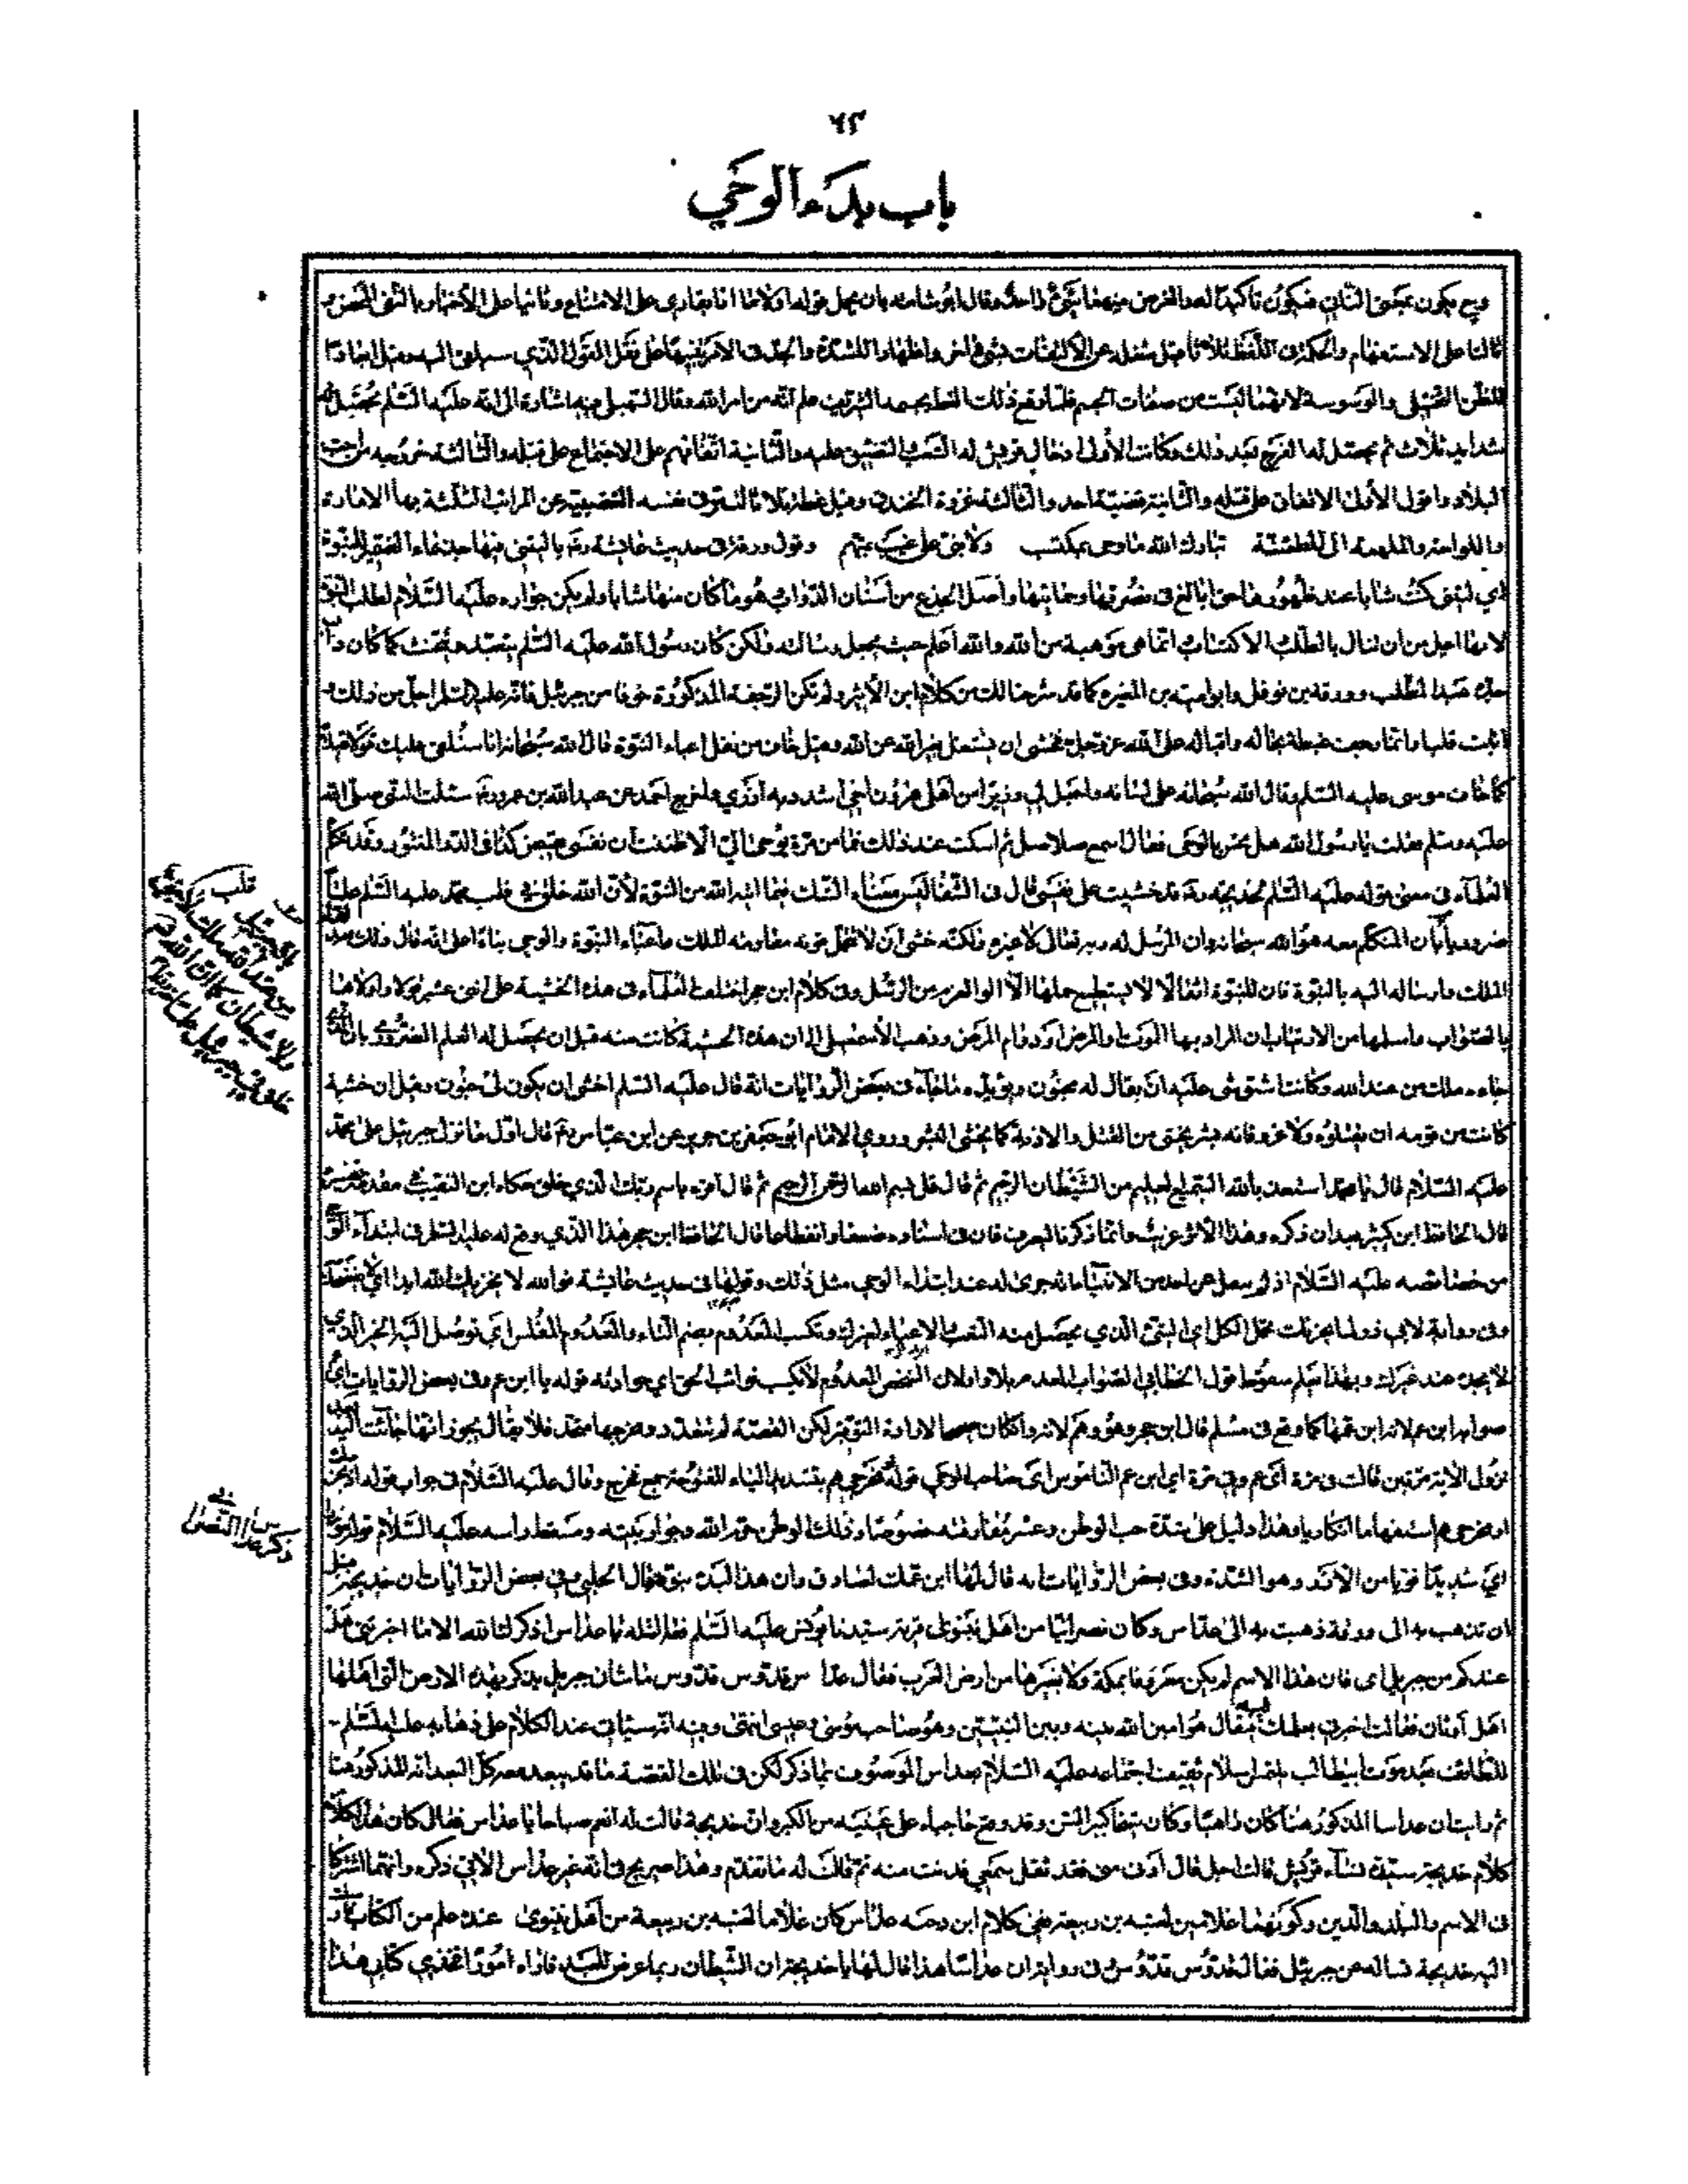 ٦٣
باب بدء الوحي
يكون بمعنى الثاني فيكون تأكيدا له والغرض منهما شيء واحد وقال ابو شامة بان يحمل قوله اولا ما انا بقارئ على الامتناع وثانيا على الاخبار بالنفي المحض و
ثالثا على الاستفهام والحكمة في اللفظ ثلاثا شغله عن الالتفات بشيء آخر واظهارا للشدة والجد في الامر تنبيها على ثقل القول الذي سيلقى اليه وقيل ابعادا
لظن التخيل والوسوسة لانهما ليستا من صفات الجسم فلما وقع ذلك بجسده الشريف علم انه من امر الله وقال السهيلي فيه اشارة الى انه عليه السلم يحصل له
شدايد ثلاث ثم يحصل له الفرج بعد ذلك وكانت الأولى ادخال قريش له الشعب والتضييق عليه والثانية اتفاقهم على الاجتماع على قتله والثالثة خروجه من احب
البلاد واقول الأولى الاتفاق على قتله والثانية قضية احد والثالثة غزوة الخندق وقيل غطه ثلاثا عن المراتب الثلثة بها الامارة
واللوامة والملهمة الى المطمئنة تبارك الله ما وحي بمكتسب ولا نبي على غيب بمتهم وقول ورقة في حديث عائشة
اي ليتني كنت شابا عند ظهور حتى ابالغ في نصرتها وحمايتها واصل الجذع من أسنان الدواب هو ما كان منها شابا ولم يكن جواره عليه السلام لطلب النبوة
لانها اجل من ان تنال بالطلب والاكتساب انما هي موهبة من الله والله اعلم حيث يجعل رسالته ولكن كان رسول الله عليه السلم يتعبد كما كان
جده عبد المطلب وورقة بن نوفل وابو امية بن المغيرة كما قد شرحنا لك من كلام ابن الأثير ولم تكن الرجفة المذكورة خوفا من جبرئيل فانه عليه السلم اجل من ذلك و
اثبت قلبا وانما رجفت غبطة بحاله واقباله على الله عز وجل فخشي ان يشتغل بغير الله عن الله وقيل خاف من ثقل اعباء النبوة قال الله سبحانه انا سنلقي عليك قولا ثقيلا
كما خاف موسى عليه السلم وقال الله سبحانه على لسانه واجعل لي وزيرا من اهلي هرون اخي اشدد به أزري واخرج احمد عن عبد الله بن عمرو سئلت النبي صلى الله
عليه وسلم فقلت يا رسول الله هل تحس بالوحي فقال اسمع صلاصل ثم اسكت عند ذلك فما من مرة يوحى الي الا ظننت ان نفسي تقبض كذا في الدر المنثور وقد تكلم
العلماء في معنى قوله عليه السلم لخديجة قد خشيت على نفسي قال في الشفا ليس معناه الشك فيما آتاه الله من النبوة لأن الله خلق في قلب محمد عليه السلم علما
ضروريا بان المتكلم معه هو الله سبحانه وان المرسل له ربه تعالى لا غيره ولكنه خشي ان لا تحتمل قوته مقاومة الملك واعباء النبوة والوحي بناء على انه قال ذلك
الملك وارساله اليه بالنبوة فان للنبوة اثقالا لا يستطيع حملها الا اولو العزم من الرسل وفي كلام ابن حجر اختلف العلماء في هذه الخشية على اثنى عشر قولا واولاها
بالصواب واسلمها من الارتياب ان المراد بها الموت او المرض او دوام المرض وذهب الأسمعيلي الى ان هذه الخشية كانت منه قبل ان يحصل له العلم الضروري بان الذي
جاءه ملك من عند الله وكانت اشق شيء عليه ان يقال له مجنون ويؤيده ما جاء في بعض الروايات انه قال عليه السلم اخشى ان يكون لي جنون وقيل ان خشية
كانت من قومه ان يقتلوه ولا غرو فانه بشر يخشى من القتل والاذية كما يخشى البشر وروى الامام ابو جعفر بن جرير عن ابن عباس قال اول ما نزل جبرئيل على محمد
عليه السلام قال يا محمد استعذ بالله السميع العليم من الشيطان الرجيم ثم قال قل بسم الله الرحمن الرحيم ثم قال اقرء باسم ربك الذي خلق حكاه ابن النقيب في مقدمة تفسيره
قال الحافظ ابن كثير بعد ان ذكره وهذا الأثر غريب وانما ذكرناه ليعرف فان في اسناده ضعفا وانقطاعا قال الحافظ ابن حجر هذا الذي وقع له عليه السلم في ابتداء الوحي
من خصائصه عليه السلام اذ لم ينقل عن احد من الانبياء انه جرى له عند ابتداء الوحي مثل ذلك وقولها في حديث عائشة فوالله لا يخزيك الله ابدا اي لا يفضحك
وفي رواية لابي ذر تحمل الكل اي الشيء الذي يحصل منه التعب والاعياء لغيرك وتكسب المعدوم بضم التاء والمعدوم المفلس اي توصل اليه الخير الذي
لا يجده عند غيرك وبهذا يعلم سقوط قول الخطابي الصواب المعدم بلا واو لان الشخص المعدوم لا يكسب نوائب الحق اي حوادثه قوله يا ابن عم وفي بعض الروايات اي
صوابه ابن عم لانه ابن عمها كما وقع في مسلم قال ابن حجر وهو وهم لانه وان كان صحيحا لارادة التوقير لكن القصة لم تتعدد ومخرجها متحد فلا يقال يجوز انها جائت اليه
نزول الآية مرتين قالت في مرة اي عم وفي مرة اي ابن عم الناموس اي صاحب الوحي قوله مخرجي هم بتشديد الياء المفتوحة جمع مخرج وقال عليه السلام في جواب قوله
او مخرجي هم استفهاما انكاريا وهذا دليل على شدة حب الوطن وعسر مفارقته خصوصا وذلك الوطن حرم الله وجوار بيته ومسقط راسه عليه السلام قوله مؤزرا
اي شديدا قويا من الازر وهو الشدة وفي بعض الروايات انه قال لها ابن عمك لصادق وان هذا لبدء نبوة قال الحلبي وفي بعض الروايات ان خديجة قبل
ان تذهب به الى ورقة ذهبت به الى عداس وكان نصرانيا من اهل نينوى قرية سيدنا يونس عليه السلم فقالت له يا عداس اذكرك الله الا ما اخبرتني هل
عندكم من جبريل اي فان هذا الاسم لم يكن معروفا بمكة ولا بغيرها من ارض العرب فقال عداس قدوس قدوس ما شان جبريل يذكر بهذه الارض التي اهلها
اهل اوثان فقالت اخبرني بعلمك فيه قال هو امين الله بينه وبين النبيين وهو صاحب موسى وعيسى انتهى وفيه انه سيأتي عند الكلام على ذهابه عليه السلم
للطائف بعد موت ابي طالب يلتمس اسلام ثقيف اجتماعه عليه السلام بعداس الموصوف بما ذكر لكن في تلك القصة ما قد يبعد معه كل البعد انه المذكور هنا
ثم رايت ان عداسا المذكور هنا كان راهبا وكان شيخا كبير السن وقد وقع حاجباه على عينيه من الكبر وان خديجة قالت له انعم صباحا يا عداس فقال كان هذا الكلام
كلام خديجة سيدة نساء قريش قالت اجل قال ادني مني فقد ثقل سمعي فدنت منه ثم قالت له ما تقدم وهذا صريح في انه غير عداس الآتي ذكره وانهما اشتركا
في الاسم والبلد والدين وكونهما غلامين لعتبة بن ربيعة ففي كلام ابن دحية عداس كان غلاما لعتبة بن ربيعة من اهل نينوى عنده علم من الكتاب
اليه خديجة تساله عن جبرئيل فقال قدوس قدوس وفي رواية ان عداسا هذا قال لها يا خديجة ان الشيطان ربما عرض للعبد فاراه امورا فخذي كتابي هذا
قلب
من عند الله
ولا شيطان كما ان الله
ذكر عداس النصراني